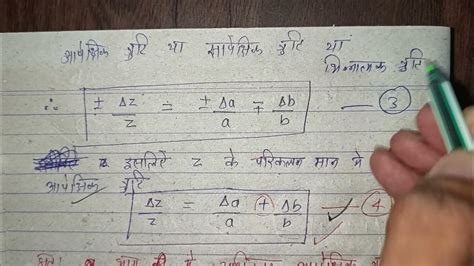 आपेक्षिक त्रुटि या सापेक्षिक त्रुटि या
भिन्नात्मक त्रुटि
∴ ± Δz/z = ± Δa/a ∓ Δb/b — (3)
इसलिऐ z के परिकलन मान मे
आपेक्षिक त्रुटि
Δz/z = Δa/a + Δb/b — (4)